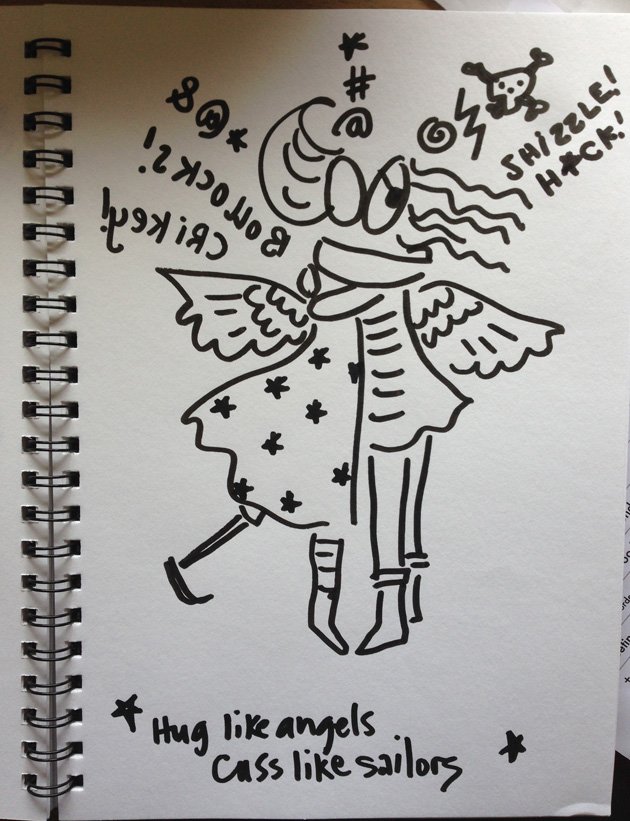 *
#
@
&@*
BOLLOCKS!
CRIKEY!
SHIZZLE!
H*CK!
Hug like angels
Cuss like sailors